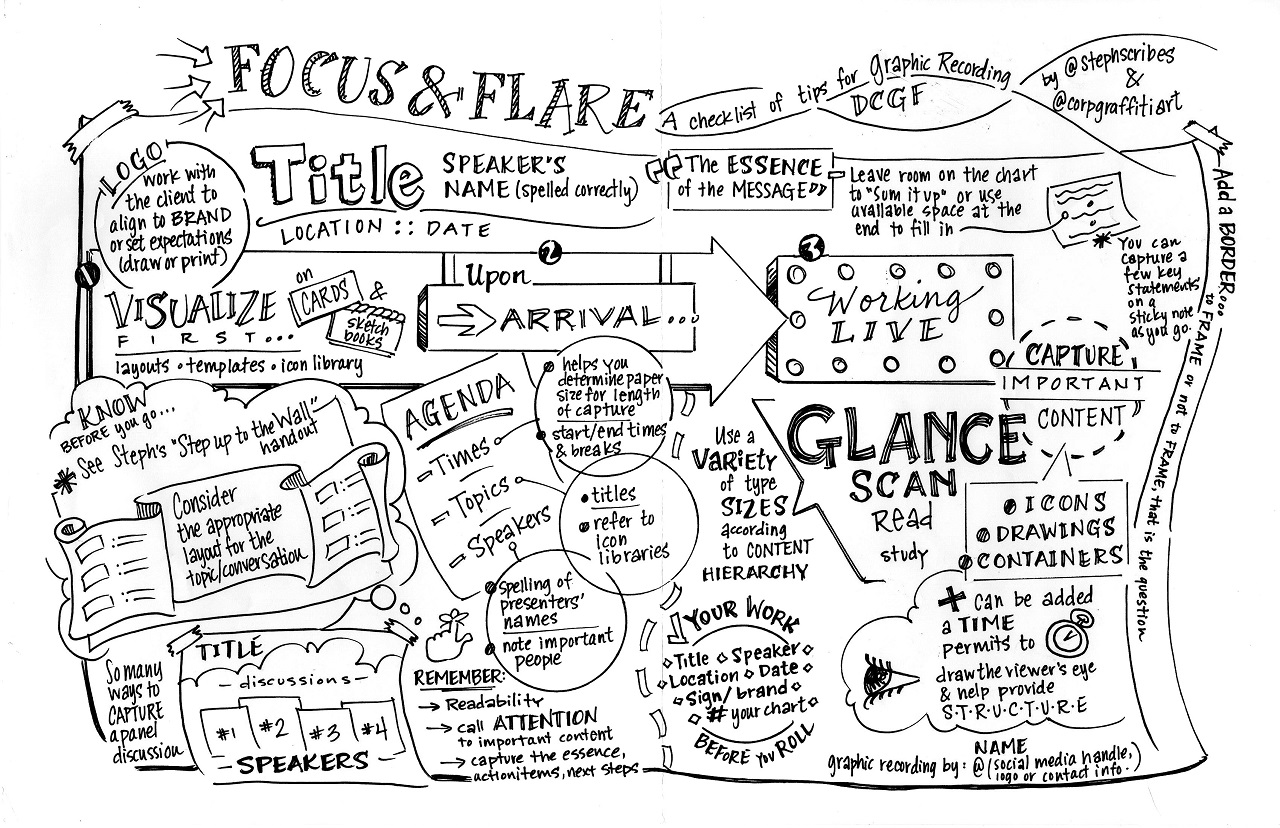 FOCUS & FLARE
A checklist of tips for Graphic Recording
DCGF
by @stephscribes
&
@corpgraffitiart
LOGO
work with
the client to
align to BRAND
or set expectations
(draw or print)
Title
SPEAKER'S
NAME (spelled correctly)
LOCATION :: DATE
"The ESSENCE
of the MESSAGE"
Leave room on the chart
to "Sum it up" or use
available space at the
end to fill in
* You can
capture a
few key
statements
on a
sticky note
as you go.
Add a BORDER...
to FRAME or not to FRAME, that is the question
1
VISUALIZE
FIRST...
on
CARDS
&
sketch
books
layouts • templates • icon library
2
Upon
ARRIVAL...
3
Working
LIVE
KNOW
BEFORE you go...
* See Steph's "Step up to the Wall"
handout
Consider
the appropriate
layout for the
topic/conversation
So many
ways to
CAPTURE
a panel
discussion
TITLE
- discussions -
#1 #2 #3 #4
- SPEAKERS -
AGENDA
- Times
- Topics
- Speakers
helps you
determine paper
size for length
of capture
start/end times
& breaks
• titles
• refer to
icon
libraries
spelling of
presenters'
names
note important
people
REMEMBER:
→ Readability
→ call ATTENTION
to important content
→ capture the essence,
action items, next steps
Use a
VARIETY
of type
SIZES
according
to CONTENT
HIERARCHY
YOUR WORK
◇ Title ◇ Speaker ◇
◇ Location ◇ Date ◇
◇ Sign/brand ◇
◇ # your chart ◇
BEFORE YOU ROLL
GLANCE
SCAN
Read
study
CAPTURE
IMPORTANT
CONTENT
• ICONS
• DRAWINGS
• CONTAINERS
+ can be added
a TIME
permits to
draw the viewer's eye
& help provide
S·T·R·U·C·T·U·R·E
NAME
graphic recording by: @ (social media handle,
logo or contact info.)